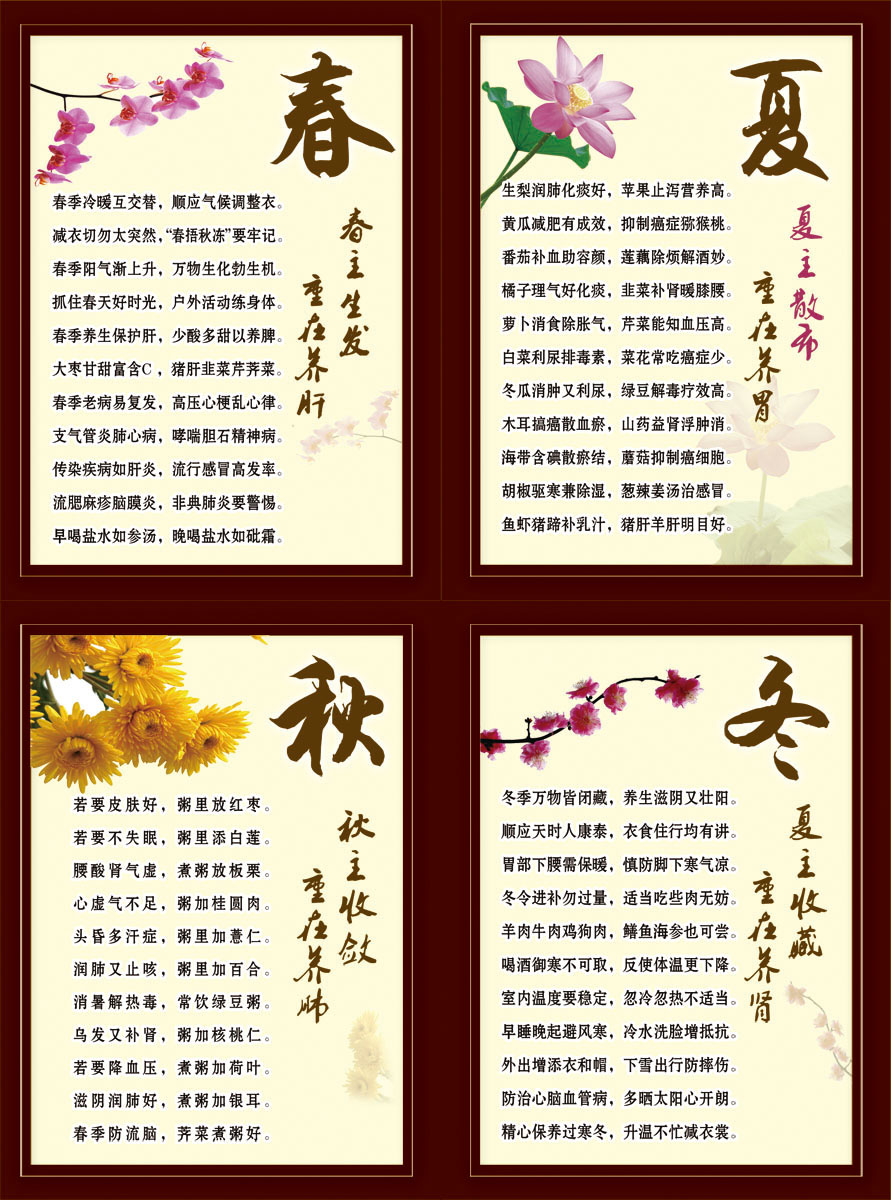 春
春季冷暖互交替，顺应气候调整衣。
减衣切勿太突然，“春捂秋冻”要牢记。
春季阳气渐上升，万物生化勃生机。
抓住春天好时光，户外活动练身体。
春季养生保护肝，少酸多甜以养脾。
大枣甘甜富含C，猪肝韭菜芹荠菜。
春季老病易复发，高压心梗乱心律。
支气管炎肺心病，哮喘胆石精神病。
传染疾病如肝炎，流行感冒高发率。
流腮麻疹脑膜炎，非典肺炎要警惕。
早喝盐水如参汤，晚喝盐水如砒霜。
春主生发
重在养肝
夏
生梨润肺化痰好，苹果止泻营养高。
黄瓜减肥有成效，抑制癌症猕猴桃。
番茄补血助容颜，莲藕除烦解酒妙。
橘子理气好化痰，韭菜补肾暖膝腰。
萝卜消食除胀气，芹菜能知血压高。
白菜利尿排毒素，菜花常吃癌症少。
冬瓜消肿又利尿，绿豆解毒疗效高。
木耳搞癌散血瘀，山药益肾浮肿消。
海带含碘散瘀结，蘑菇抑制癌细胞。
胡椒驱寒兼除湿，葱辣姜汤治感冒。
鱼虾猪蹄补乳汁，猪肝羊肝明目好。
夏主散布
重在养胃
秋
若要皮肤好，粥里放红枣。
若要不失眠，粥里添白莲。
腰酸肾气虚，煮粥放板栗。
心虚气不足，粥加桂圆肉。
头昏多汗症，粥里加薏仁。
润肺又止咳，粥里加百合。
消暑解热毒，常饮绿豆粥。
乌发又补肾，粥加核桃仁。
若要降血压，煮粥加荷叶。
滋阴润肺好，煮粥加银耳。
春季防流脑，荠菜煮粥好。
秋主收敛
重在养肺
冬
冬季万物皆闭藏，养生滋阴又壮阳。
顺应天时人康泰，衣食住行均有讲。
胃部下腰需保暖，慎防脚下寒气凉。
冬令进补勿过量，适当吃些肉无妨。
羊肉牛肉鸡狗肉，鳝鱼海参也可尝。
喝酒御寒不可取，反使体温更下降。
室内温度要稳定，忽冷忽热不适当。
早睡晚起避风寒，冷水洗脸增抵抗。
外出增添衣和帽，下雪出行防摔伤。
防治心脑血管病，多晒太阳心开朗。
精心保养过寒冬，升温不忙减衣裳。
夏主收藏
重在养肾